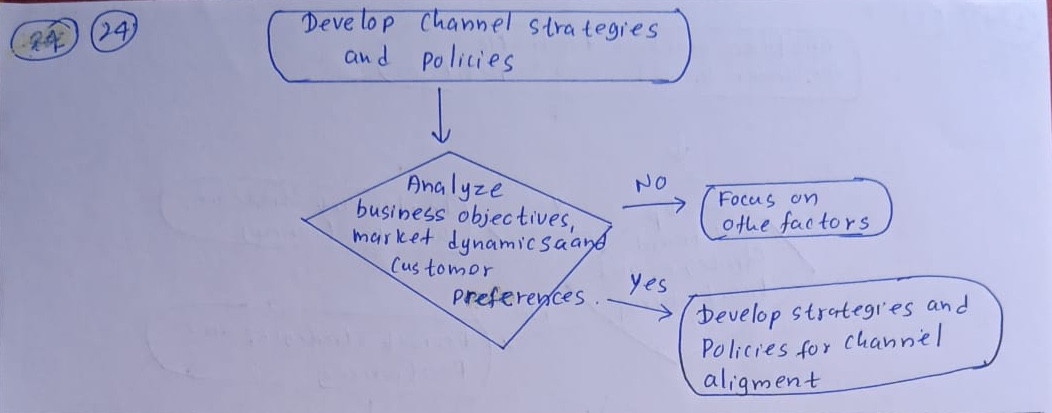 24 24
Develop channel strategies
and policies
Analyze
business objectives,
market dynamicsaand
Customor
preferences.
NO
Focus on
othe factors
Yes
Develop strategies and
Policies for channel
aligment